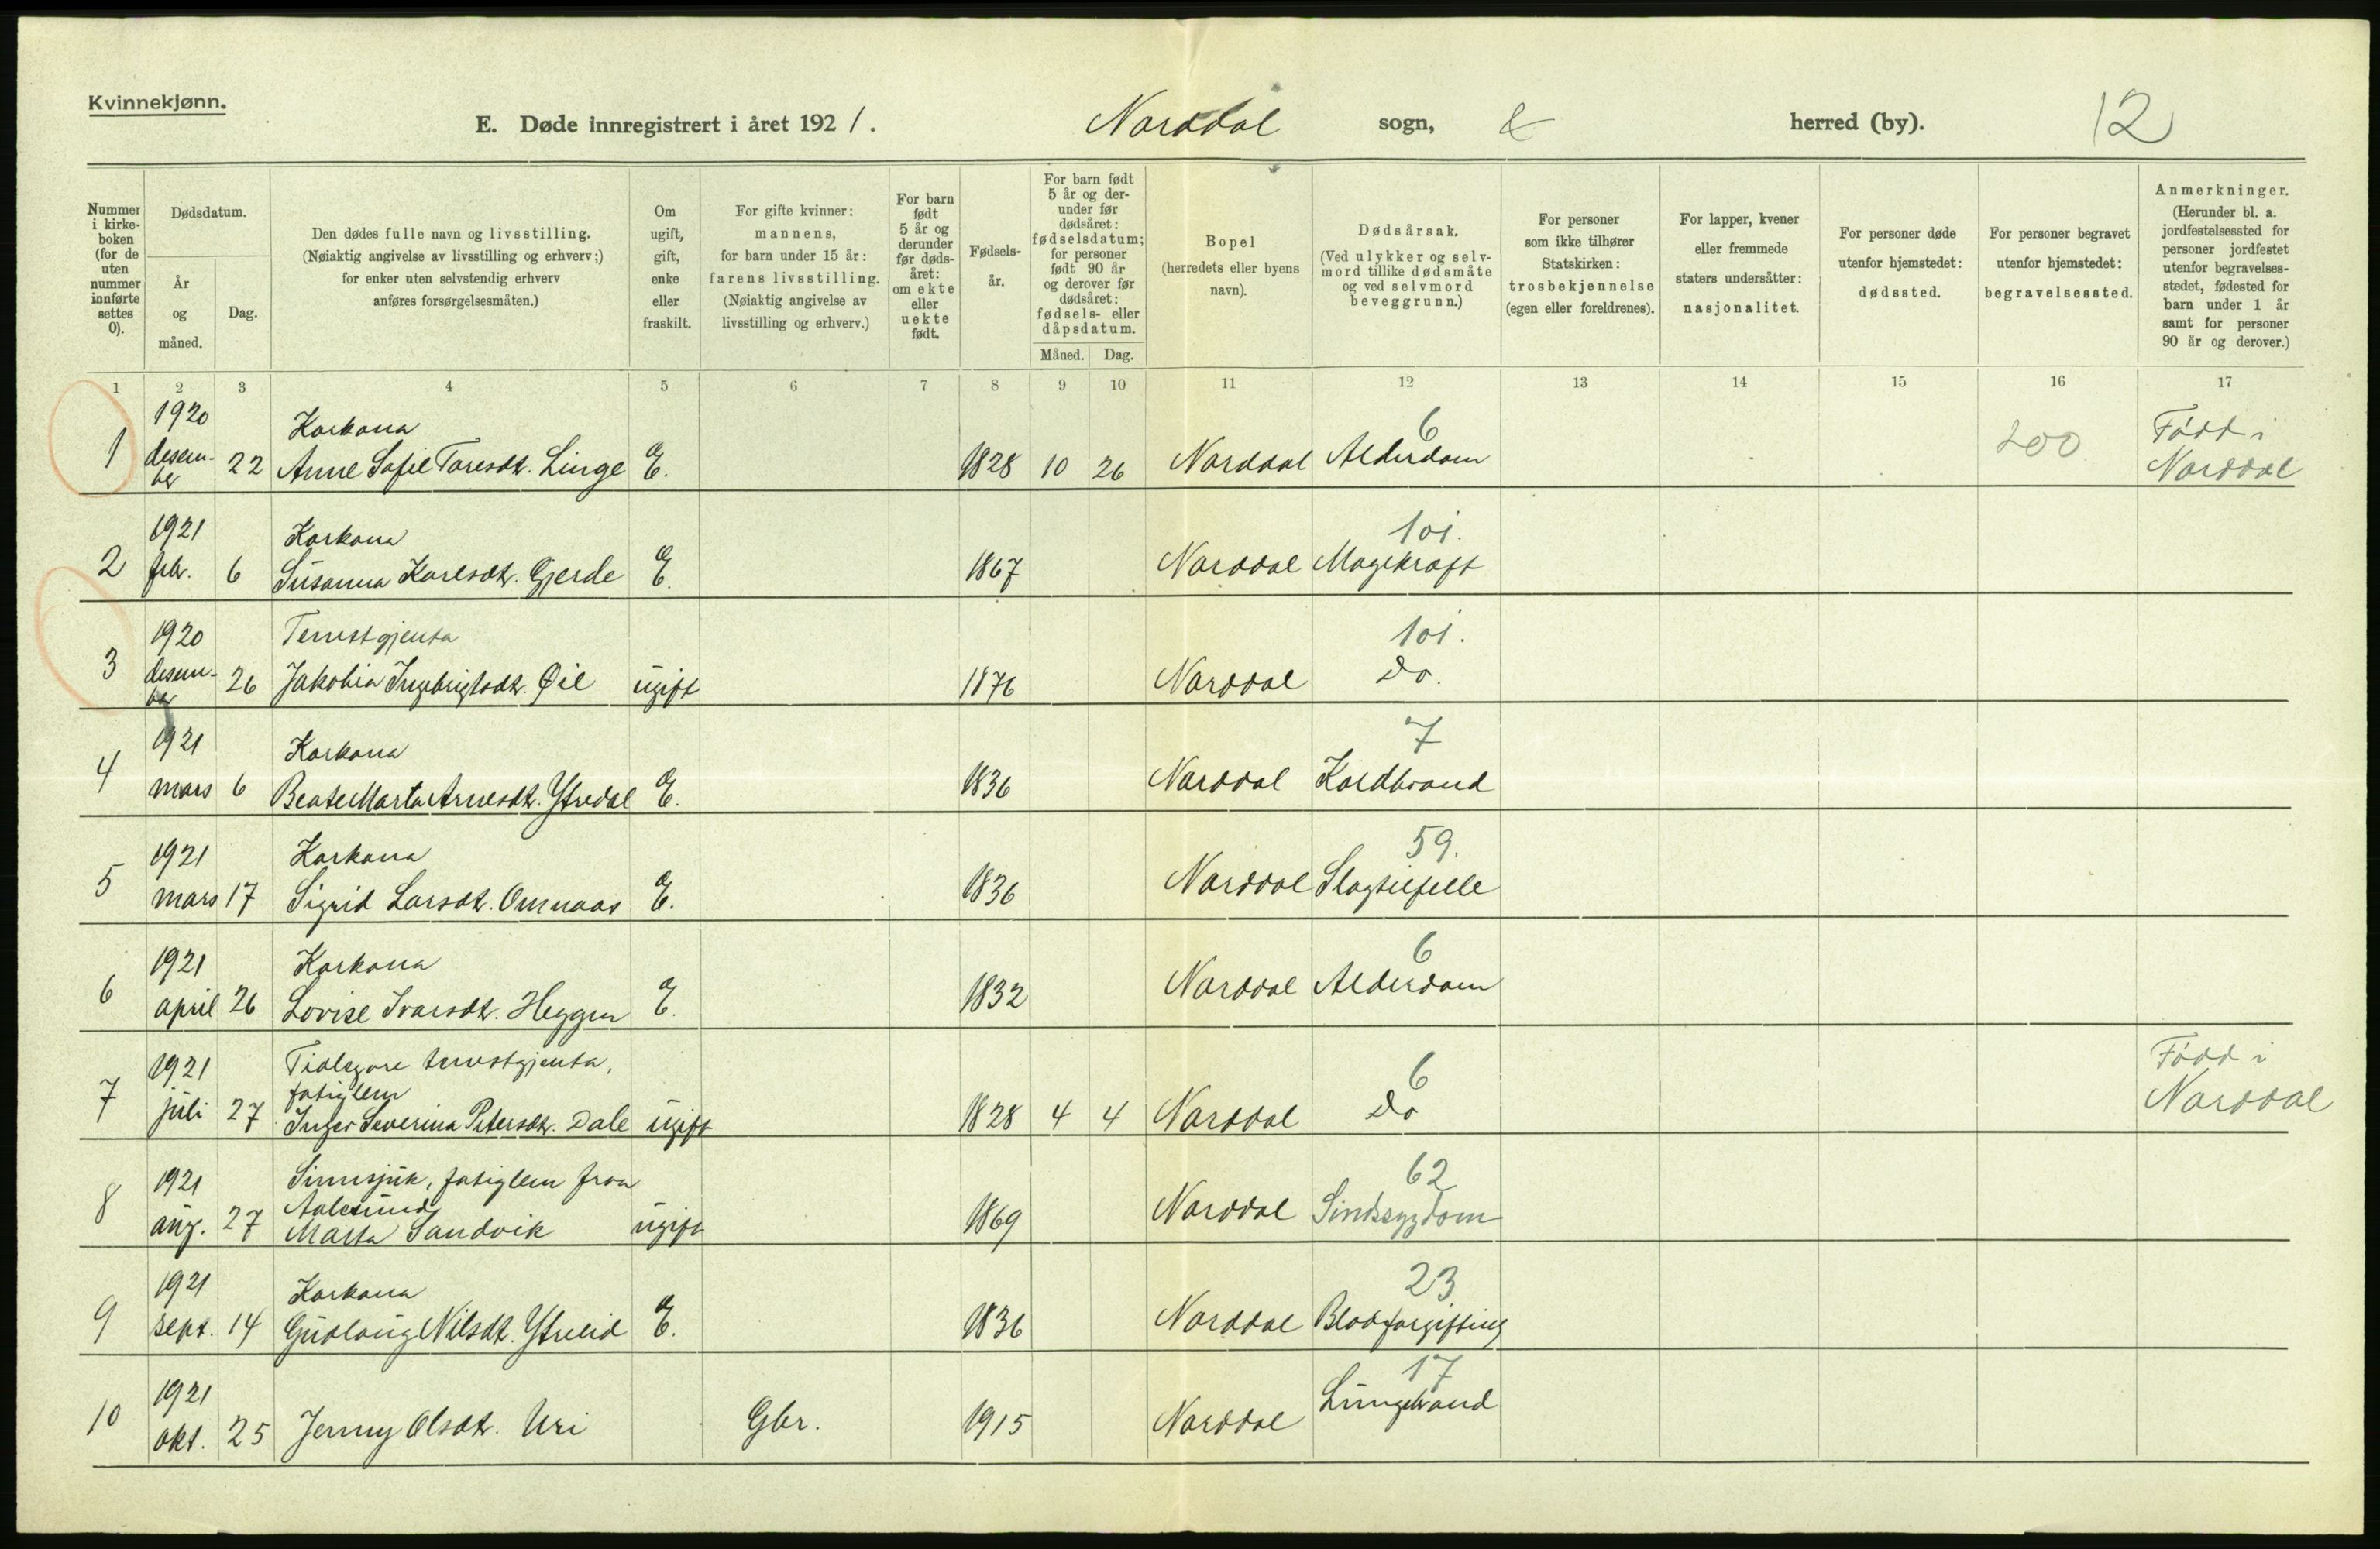 Kvinnekjønn.
E. Døde innregistrert i året 1921.
Norddal sogn, & herred (by). 12
Nummer i kirke- boken (for de uten nummer innførte settes 0).
Dødsdatum.
År og måned.
Dag.
Den dødes fulle navn og livsstilling.
(Nøiaktig angivelse av livsstilling og erhverv;)
for enker uten selvstendig erhverv
anføres forsørgelsesmåten.)
Om ugift, gift, enke eller fraskilt.
For gifte kvinner:
mannens,
for barn under 15 år:
farens livsstilling.
(Nøiaktig angivelse av
livsstilling og erhverv.)
For barn født 5 år og derunder før døds- året: om ekte eller uekte født.
Fødsels- år.
For barn født 5 år og der- under før dødsåret: fødselsdatum; for personer født 90 år og derover før dødsåret: fødsels- eller dåpsdatum.
Måned. Dag.
Bopel
(herredets eller byens
navn).
Dødsårsak.
(Ved ulykker og selv-
mord tillike dødsmåte
og ved selvmord
beveggrunn.)
For personer
som ikke tilhører
Statskirken:
trosbekjennelse
(egen eller foreldrenes).
For lapper, kvener
eller fremmede
staters undersåtter:
nasjonalitet.
For personer døde
utenfor hjemstedet:
dødssted.
For personer begravet
utenfor hjemstedet:
begravelsessted.
Anmerkninger.
(Herunder bl. a.
jordfestelsessted for
personer jordfestet
utenfor begravelses-
stedet, fødested for
barn under 1 år
samt for personer
90 år og derover.)
1 2 3 4 5 6 7 8 9 10 11 12 13 14 15 16 17
1920 Korkona 6 Fødd i
1 desem- ber 22 Anne Sofie Toresdt. Linge E. 1828 10 26 Norddal Alderdom 200 Norddal
1921 Korkona 101.
2 febr. 6 Susanna Karlsdt. Gjerde E. 1867 Norddal Magekræft
1920 Tenestgjenta 101.
3 desem- ber 26 Jakobia Ingebrigtsdt. Øie ugift 1876 Norddal Do.
1921 Korkona 7
4 mars 6 Beate Marta Arnesdt. Ytredal E. 1836 Norddal Koldbrand
1921 Korkona 59.
5 mars 17 Sigrid Larsdt. Omnaas E. 1836 Norddal Slagtilfelle
1921 Korkona 6
6 april 26 Lovise Ivarsdt. Heggen E. 1832 Norddal Alderdom
1921 Tidlegare tenestgjenta, 6 Fødd i
fatiglem
7 juli 27 Inger Severina Petersdt. Dale ugift 1828 4 4 Norddal Do Norddal
1921 Sinnsjuk, fatiglem fraa 62
Aalesund
8 aug. 27 Marta Sandvik ugift 1869 Norddal Sindssygdom
1921 Korkona 23
9 sept. 14 Gudlaug Nilsdt. Ytrelid E. 1836 Norddal Blodforgifting
1921 17
10 okt. 25 Jenny Olsdt. Uri Gbr. 1915 Norddal Lungebrand